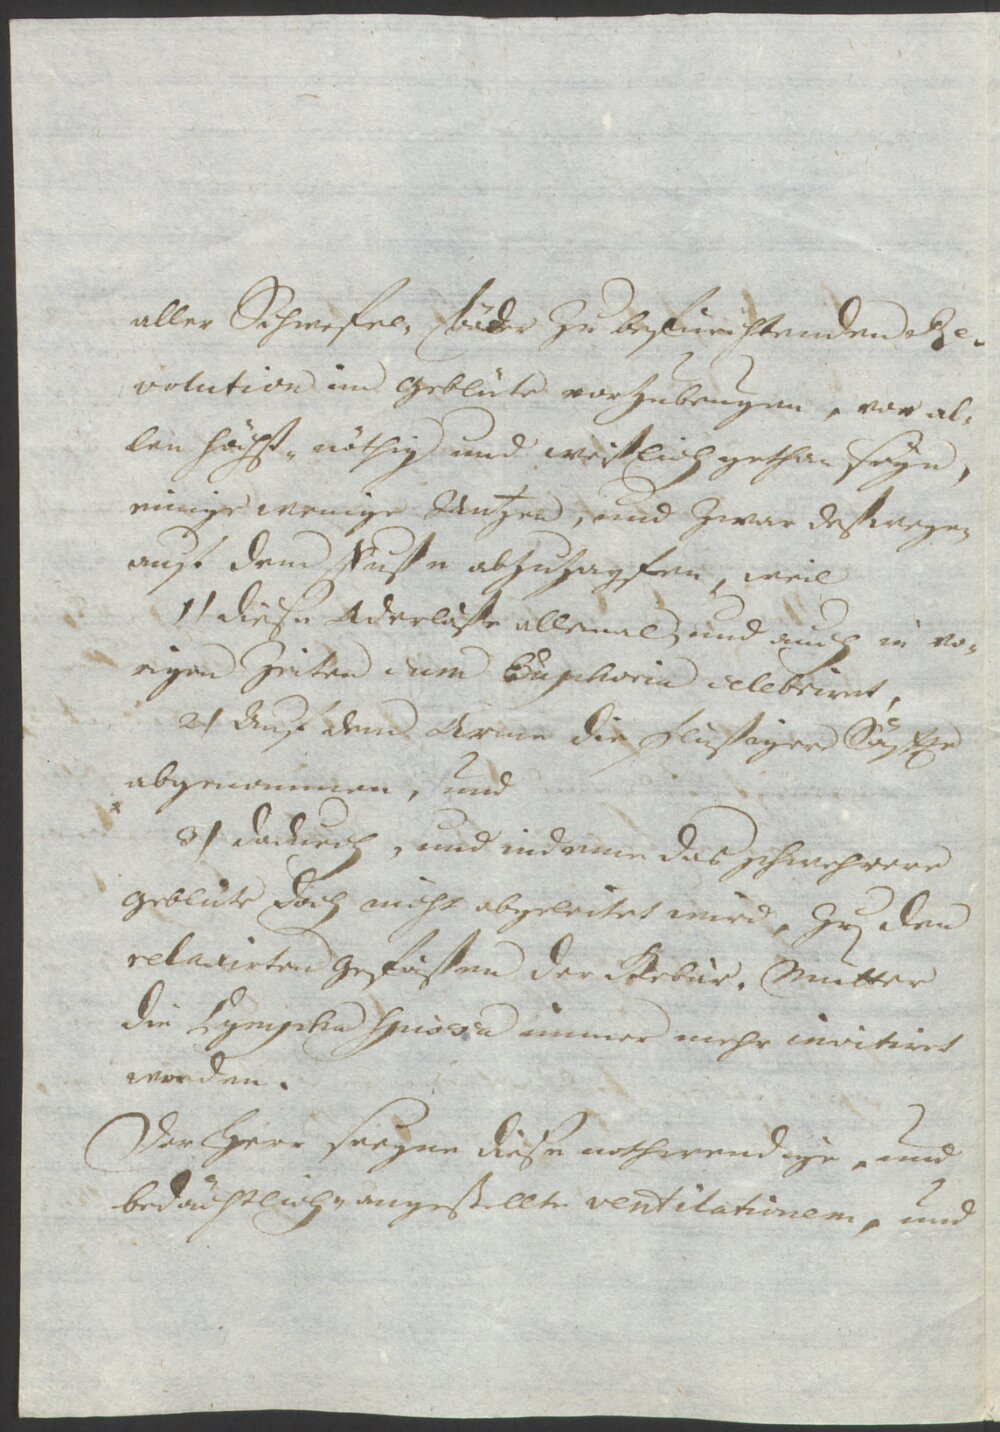 aller Schwefel-bäder zu befürchtenden Re-
volution im Geblüte vorzubeugen, vor al-
len höchst-nöthig und weißlich gethan seyn,
einige wenige Untzen, und zwar deßwegen
auf dem Fuße abzuzapfen, weil
1/ diese Aderläße allemal, und auch in vo-
rigen Zeiten cum Euphoria celebriret,
2/ Auf dem Arme die flüßigere Säffte
abgenommen, und
3/ dadurch, und indeme das schwehrere
Geblüte doch nicht abgeleitet wird, zu den
relaxirten Gefäßen der Gebär-Mutter
die Lympha immer mehr invitiret
worden.
Der Herr seegne diese nothwendige, und
bedächtlich-angestellte ventilationem, und